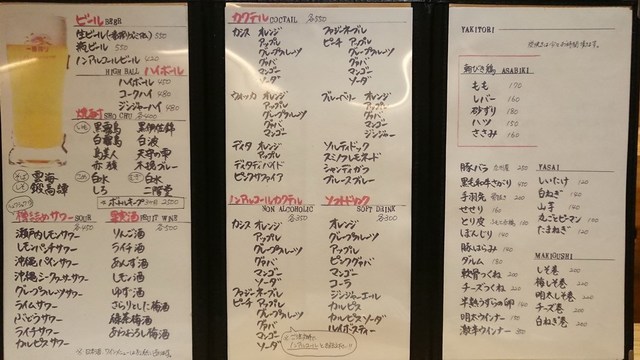 ビール BEER
生ビール(一番搾り) 550
瓶ビール 550
ノンアルコールビール 420
HIGH BALL ハイボール
ハイボール 450
コークハイ 480
ジンジャーハイ 480
焼酎 SHO CHU 各400
黒霧島 黒伊佐錦
白霧島 白波
島美人 天守の雫
赤猿 木挽ブルー
雲海 白水
銀高譚
白水
しろ 二階堂
SOUR
瀬戸内レモンサワー
レモンパンチサワー
沖縄パインサワー
沖縄シークヮーサーサワー
グレープフルーツサワー
ライムサワー
ぶどうサワー
ライチサワー
カルピスサワー
果実酒 FRUIT WINE 各450
りんご酒
ライチ酒
あんず酒
レモン酒
ゆず酒
さらりとした梅酒
緑茶梅酒
カクテル COCTAIL 各550
カシス オレンジ
アップル
グレープフルーツ
グァバ
マンゴー
ソーダ
ファジーネーブル
ピーチ アップル
グレープフルーツ
グァバ
マンゴー
ソーダ
ウォッカ オレンジ
アップル
グレープフルーツ
グァバ
マンゴー
ブルーベリー オレンジ
アップル
グァバ
マンゴー
ジンジャー
ディタ オレンジ
アップル
ディタダイバイド
ピンクフライア
ソルティドック
スミノフレモネード
シャンディガラ
ブルースブルー
ノンアルコールカクテル
NON ALCOHOLIC 各350
カシス オレンジ
アップル
グレープフルーツ
グァバ
マンゴー
ソーダ
ファジーネーブル
ピーチ アップル
グレープフルーツ
グァバ
マンゴー
ソーダ
ソフトドリンク
SOFT DRINK 各300
オレンジ
グレープフルーツ
アップル
ピンクグァバ
マンゴー
コーラ
ジンジャーエール
カルピス
カルピスソーダ
ハイボースティー
YAKITORI
朝びき鶏 ASABIKI
もも 170
レバー 160
砂ずり 180
ハツ 150
ささみ 160
豚バラ 200
黒毛和牛さがり 450
手羽先
せせり 160
とり皮
ぼんじり 140
豚はらみ
ダルム 180
軟骨つくね 200
チーズつくね 250
半熟うずらの卵 190
明太ウインナー
激辛ウインナー 300
YASAI
しいたけ 120
白ねぎ 140
山芋 140
丸ごとピーマン 150
たまねぎ 140
MAKIGUSHI
しそ巻 200
梅しそ巻 200
明太しそ巻 250
チーズ巻 200
白ねぎ巻 200